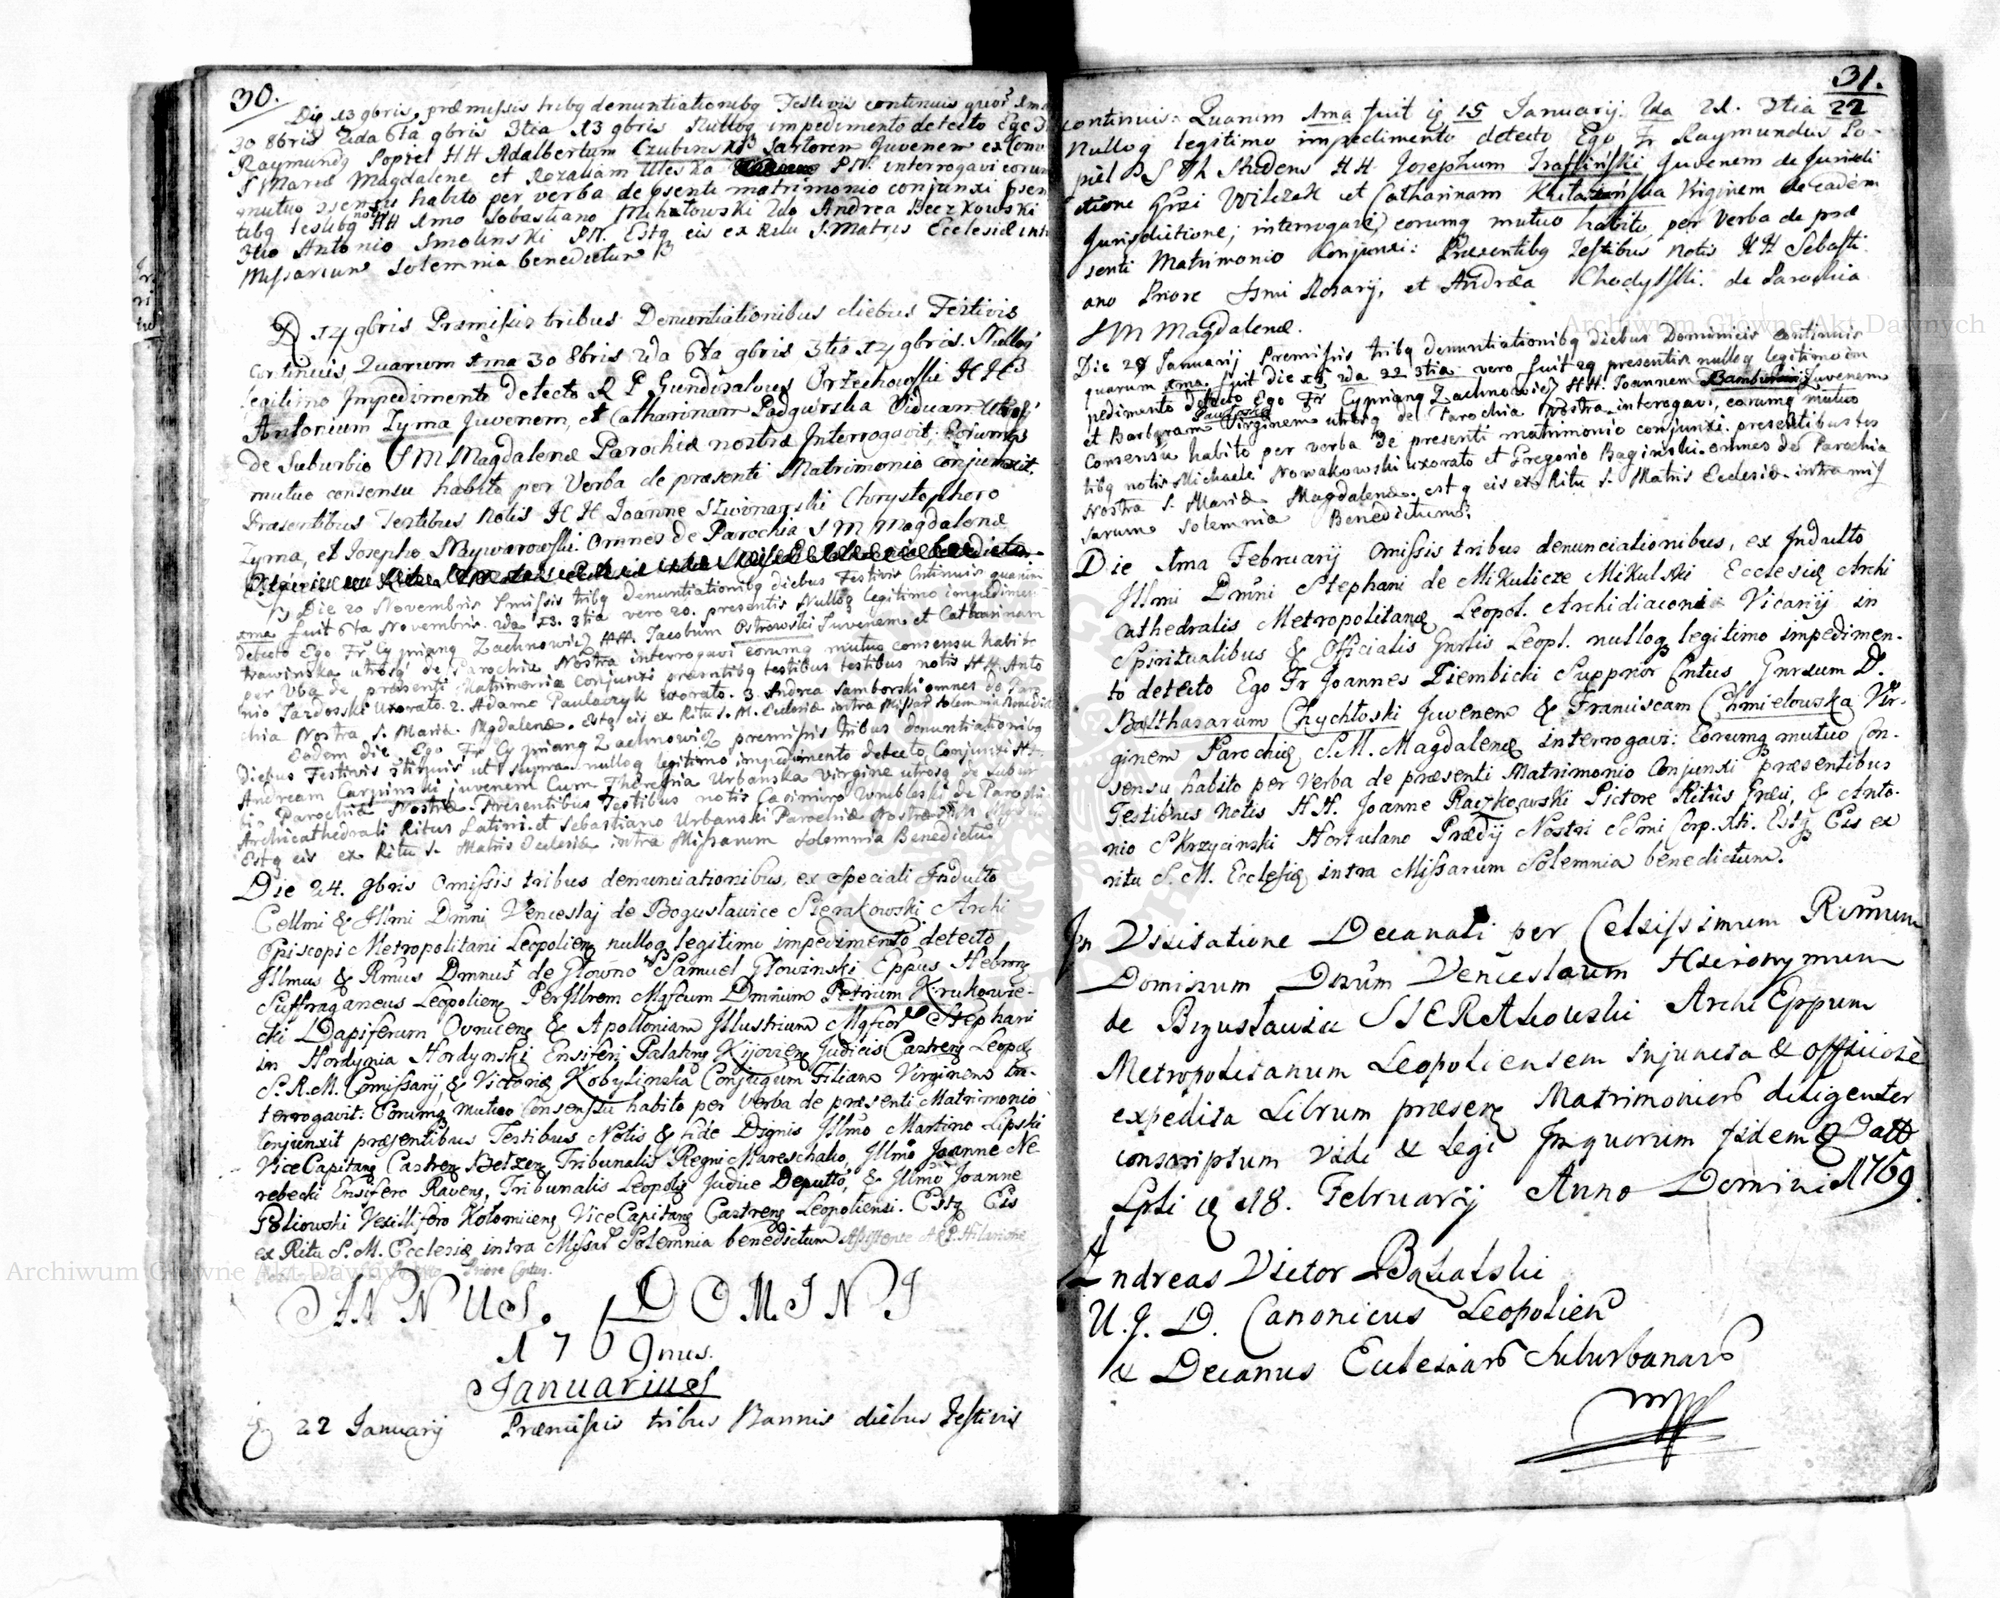 30.
Die 13 9bris, præmissis tribq denuntiationibq Festivis continuis quor 1ma
30 8bris 2da 6ta 9bris 3tia 13 9bris Nulloq impedimento detecto Ego
Raymundq Popiel HH Adalbertum Czubinski Sartorem Juvenem ex
S Mariæ Magdalenæ et Rozaliam PN. interrogavi eorum
mutuo 9sensu habito per verba de psenti matrimonio conjunxi psen
tibq testibq notis HH 1mo Sobastiano Michałowski 2do Andrea Beczkowski
3tio Antonio Smolinski PN. Estq eis ex Ritu S. Matris Ecclesiæ intra
Missarum solemnia benedictum
D 14 9bris Præmissis tribus Denuntiationibus diebus Festivis
continuis, Quarum 1ma 30 8bris 2da 6ta 9bris 3tia 14 9bris. Nulloq
legitimo Impedimento detecto R P Gundisalvus Orzechowski HH
Antonium Zyma Juvenem, et Catharinam Podgurska Viduam utrosq
de Suburbio S M Magdalenæ Parochiæ nostræ Interrogavit; Eorumq
mutuo consensu habito per Verba de præsenti Matrimonio conjunxit.
Præsentibus Testibus Notis HH Joanne Chrystophero
Zyma, et Josepho Omnes de Parochia S M Magdalenæ
Die 20 Novembris Pmissis tribq denuntiationibq diebus Festivis Cntinuis quarum
1ma fuit 6ta Novembris. 2da 13. 3tia vero 20. presentis Nulloq legitimo impedimen
detecto Ego Fr Cyprianq Zachnowicz HH. Jacobum Ostrowski Juvenem et Catharinam
utrosq de Parochia Nostra interrogavi eorumq mutuo consensu habito
per Vba de præsenti Matrimonio conjunxi præsntibq testibus testibus notis HH. Anto
nio Uxorato. 2. Adamo Pawlaczyk uxorato. 3. Andrea Samborski omnes de Paro
chia Nostra S. Mariæ Magdalenæ. Estq eis ex Ritu S. M. Ecclesiæ intra Missar solemnia
Eodem die Ego Fr Cyprianq Zachnowicz premissis tribus denuntiationibq
Diebus Festivis 9tinuis ut supra nulloq legitimo impedimento detecto, Conjunxi HH
Andream Carpinski juvenem Cum Theresia Urbanska virgine utrosq de Subur
bio Parochiæ Nostræ. Presentibus Testibus notis Casimiro de Parochi
Archicathedrali Ritus Latini. et Sebastiano Urbanski Parochiæ Nostræ
Estq eis ex Ritu S. Matris Ecclesiæ intra Missarum solemnia Benedictum
Die 24. 9bris Omissis tribus denunciationibus, ex speciali Indulto
Celsmi & Illmi Dmni Venceslaj de Bogusławice Sierakowski Archi
Episcopi Metropolitani Leopolien nulloq legitimo impedimento detecto
Illmus & Rmus Dmnus de Głowno Samuel Głowinski Eppus Hebron
Suffraganeus Leopolien PerIllrem Mgfcum Dmnum Petrum Krukowie-
cki Dapiferum & Apolloniam Illustrium Mgfcor Stephani
in Hordynia Hordynski Ensiferi Palatinq Kijovien Judicis Castren Leopol
S. R. M. Comissarij, & Victoriæ Kobylinska Conjugum Filiam Virginem in-
terrogavit: Eorumq mutuo Consensu habito per verba de præsenti Matrimonio
Conjunxit præsentibus Testibus Notis & fide Dignis Illmo Martino Lipski
Vice Capitanq Castren Belzen, Tribunalis Regni Mareschalco, Illmo Joanne Nie
rebecki Ensifero Raven, Tribunalis Leopolis Judice Deputto, & Illmo Joanne
Poliowski Vexillifero Kołomiien ViceCapitanq Castren Leopoliensi. Estq Eis
ex Ritu S. M. Ecclesiæ intra Missar Solemnia benedictum Assistente A. R. P. Hilarione
Priore Cntus
ANNUS DOMINI
1769nus.
Januarius
D 22 Januarij Præmissis tribus Bannis diebus Festivis
31.
continuis: Quarum 1ma fuit D 15 Januarij. 2da 21. 3tia 22
Nulloq legitimo impedimento detecto Ego Fr Raymundus Po-
piel P S Th Studens HH Josephum Trafliński Juvenem de Jurisdi
ctione Grzi Wilczek et Catharinam Virginem de eadem
Jurisdictione; interrogavi, eorumq mutuo habito, per Verba de præ
senti Matrimonio Conjunxi: Præsentibq Testibus Notis HH Sebasti
ano Priore Ssmi Rosarij, et Andræa Chodylski. de Parochia
S M Magdalenæ.
Die 29 Januarij Premissis tribq denuntiationibq diebus Dominicis continuis
quarum 1ma. fuit die 15 2da 22 3tia vero fuit 29 presentis nulloq legitimo im
pedimento detecto Ego Fr Cyprianq Zachnowicz HH. Joannem Juvenem
et Barbaram Virginem utrosq de Parochia Nostra interogavi, eorumq mutuo
Consensu habito per verba de presenti matrimonio conjunxi. presentibus tes
tibq notis Michaele Nowakowski uxorato et Gregorio Baginski. omnes de Parochia
Nostra S. Mariæ Magdalenæ. est q eis ex Ritu S. Matris Ecclesiæ intra mis
sarum solemnia Benedictum.
Die 1ma Februarij Omissis tribus denunciationibus, ex Indulto
Illmi Dmni Stephani de Mikulicze Mikulski Ecclesiæ Archi
cathedralis Metropolitanæ Leopol. Archidiaconi Vicarij in
Spiritualibus & Officialis Gnrlis Leopl. nulloq legitimo impedimen-
to detecto Ego Fr Joannes Ziembicki Supprior Cntus Gnrsum D.
Balthasarum Chychłoski Juvenem & Franciscam Chmielowska Vir-
ginem Parochiæ S. M. Magdalenæ interrogavi: Eorumq mutuo Con-
sensu habito per Verba de præsenti Matrimonio Conjunxi præsentibus
Testibus notis HH. Joanne Raczkowski Pictore Ritûs Græci, & Anto-
nio Skrzycinski Hortulano Prædij Nostri SSmi Corp. Xti. Estq Eis ex
ritu S. M. Ecclesiæ intra Missarum Solemnia benedictum.
In Visitatione Decanali per Celsissimum Rmum
Dominum Dnum Venceslaum Hieronymum
de Bogusławice SIERAkowski Archi Eppum
Metropolitanum Leopoliensem injuncta & officiose
expedita Librum præsen Matrimonior diligenter
conscriptum vidi & legi In quorum fidem Datt
Lpli D 18. Februarij Anno Domini 1769.
Andreas Victor
U. J. D. Canonicus Leopolien
& Decanus Ecclesiar Suburbanar
mpp
Archiwum Główne Akt Dawnych
Archiwum Główne Akt Dawnych